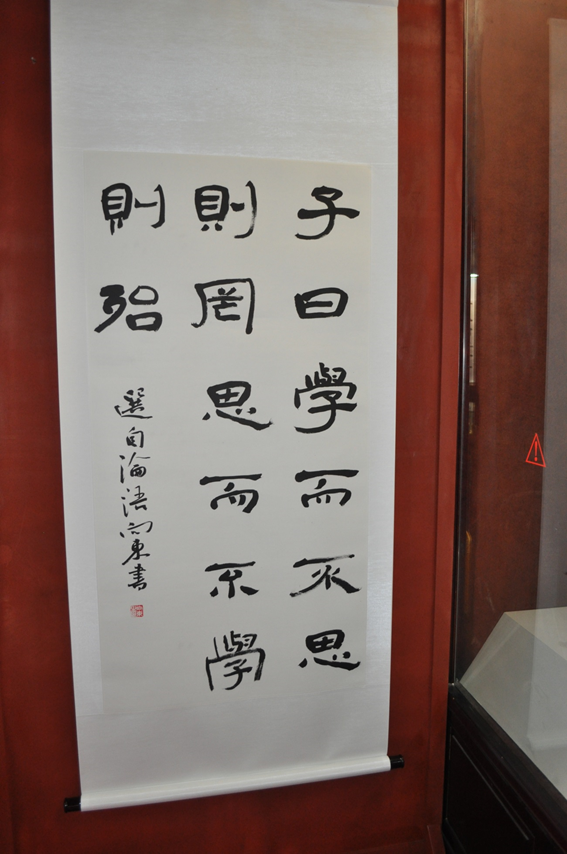 子曰學而不思
則罔思而不學
則殆
選自論語向東書